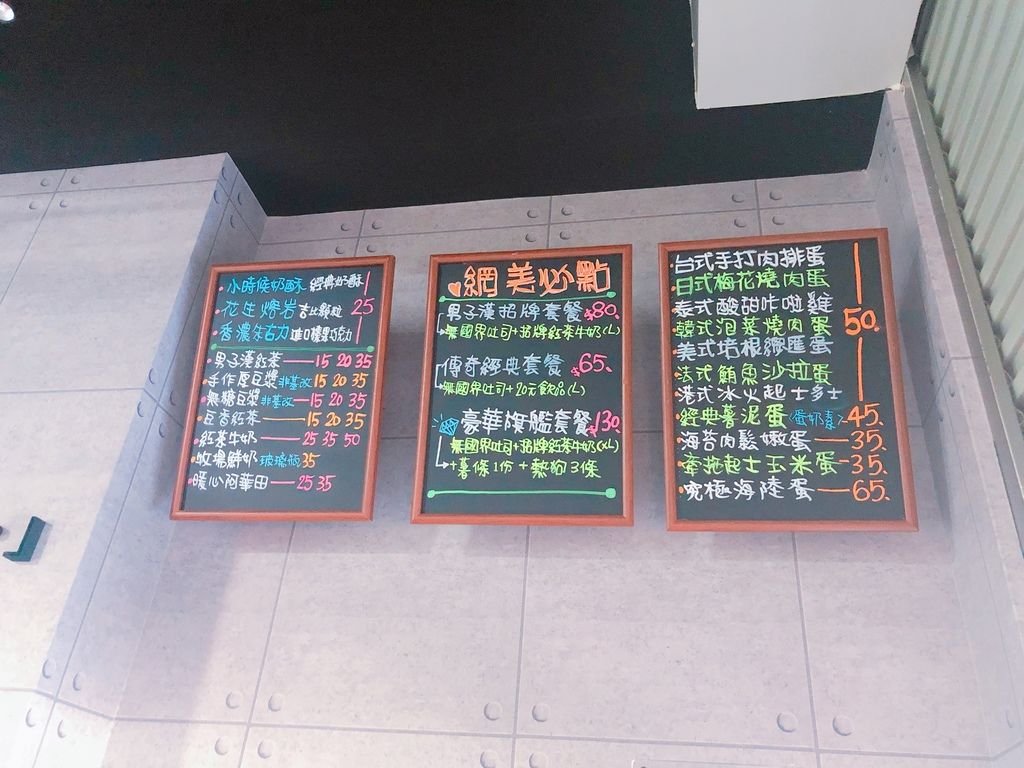 小時候奶酥 經典奶酥
花生熔岩 吉比顆粒 25
香濃朱古力 進口榛果巧克力
男子漢紅茶 15 20 35
手作厚豆漿 非基改 15 20 35
無糖豆漿 非基改 15 20 35
豆香紅茶 15 20 35
紅茶牛奶 25 35 50
牧場鮮奶 玻璃瓶 35
暖心阿華田 25 35
網美必點
男子漢招牌套餐 $80.
無國界吐司+招牌紅茶牛奶(L)
傳奇經典套餐 $65.
無國界吐司+20元飲品(L)
豪華旗艦套餐 $130.
無國界吐司+招牌紅茶牛奶(XL)
+薯條1份+熱狗3條
台式手打肉排蛋
日式梅花燒肉蛋
泰式酸甜咔啦雞
韓式泡菜燒肉蛋 50.
美式培根總匯蛋
法式鮪魚沙拉蛋
港式冰火起士多士
經典薯泥蛋(蛋奶素) 45.
海苔肉鬆嫩蛋 35.
牽拖起士玉米蛋 35.
究極海陸蛋 65.